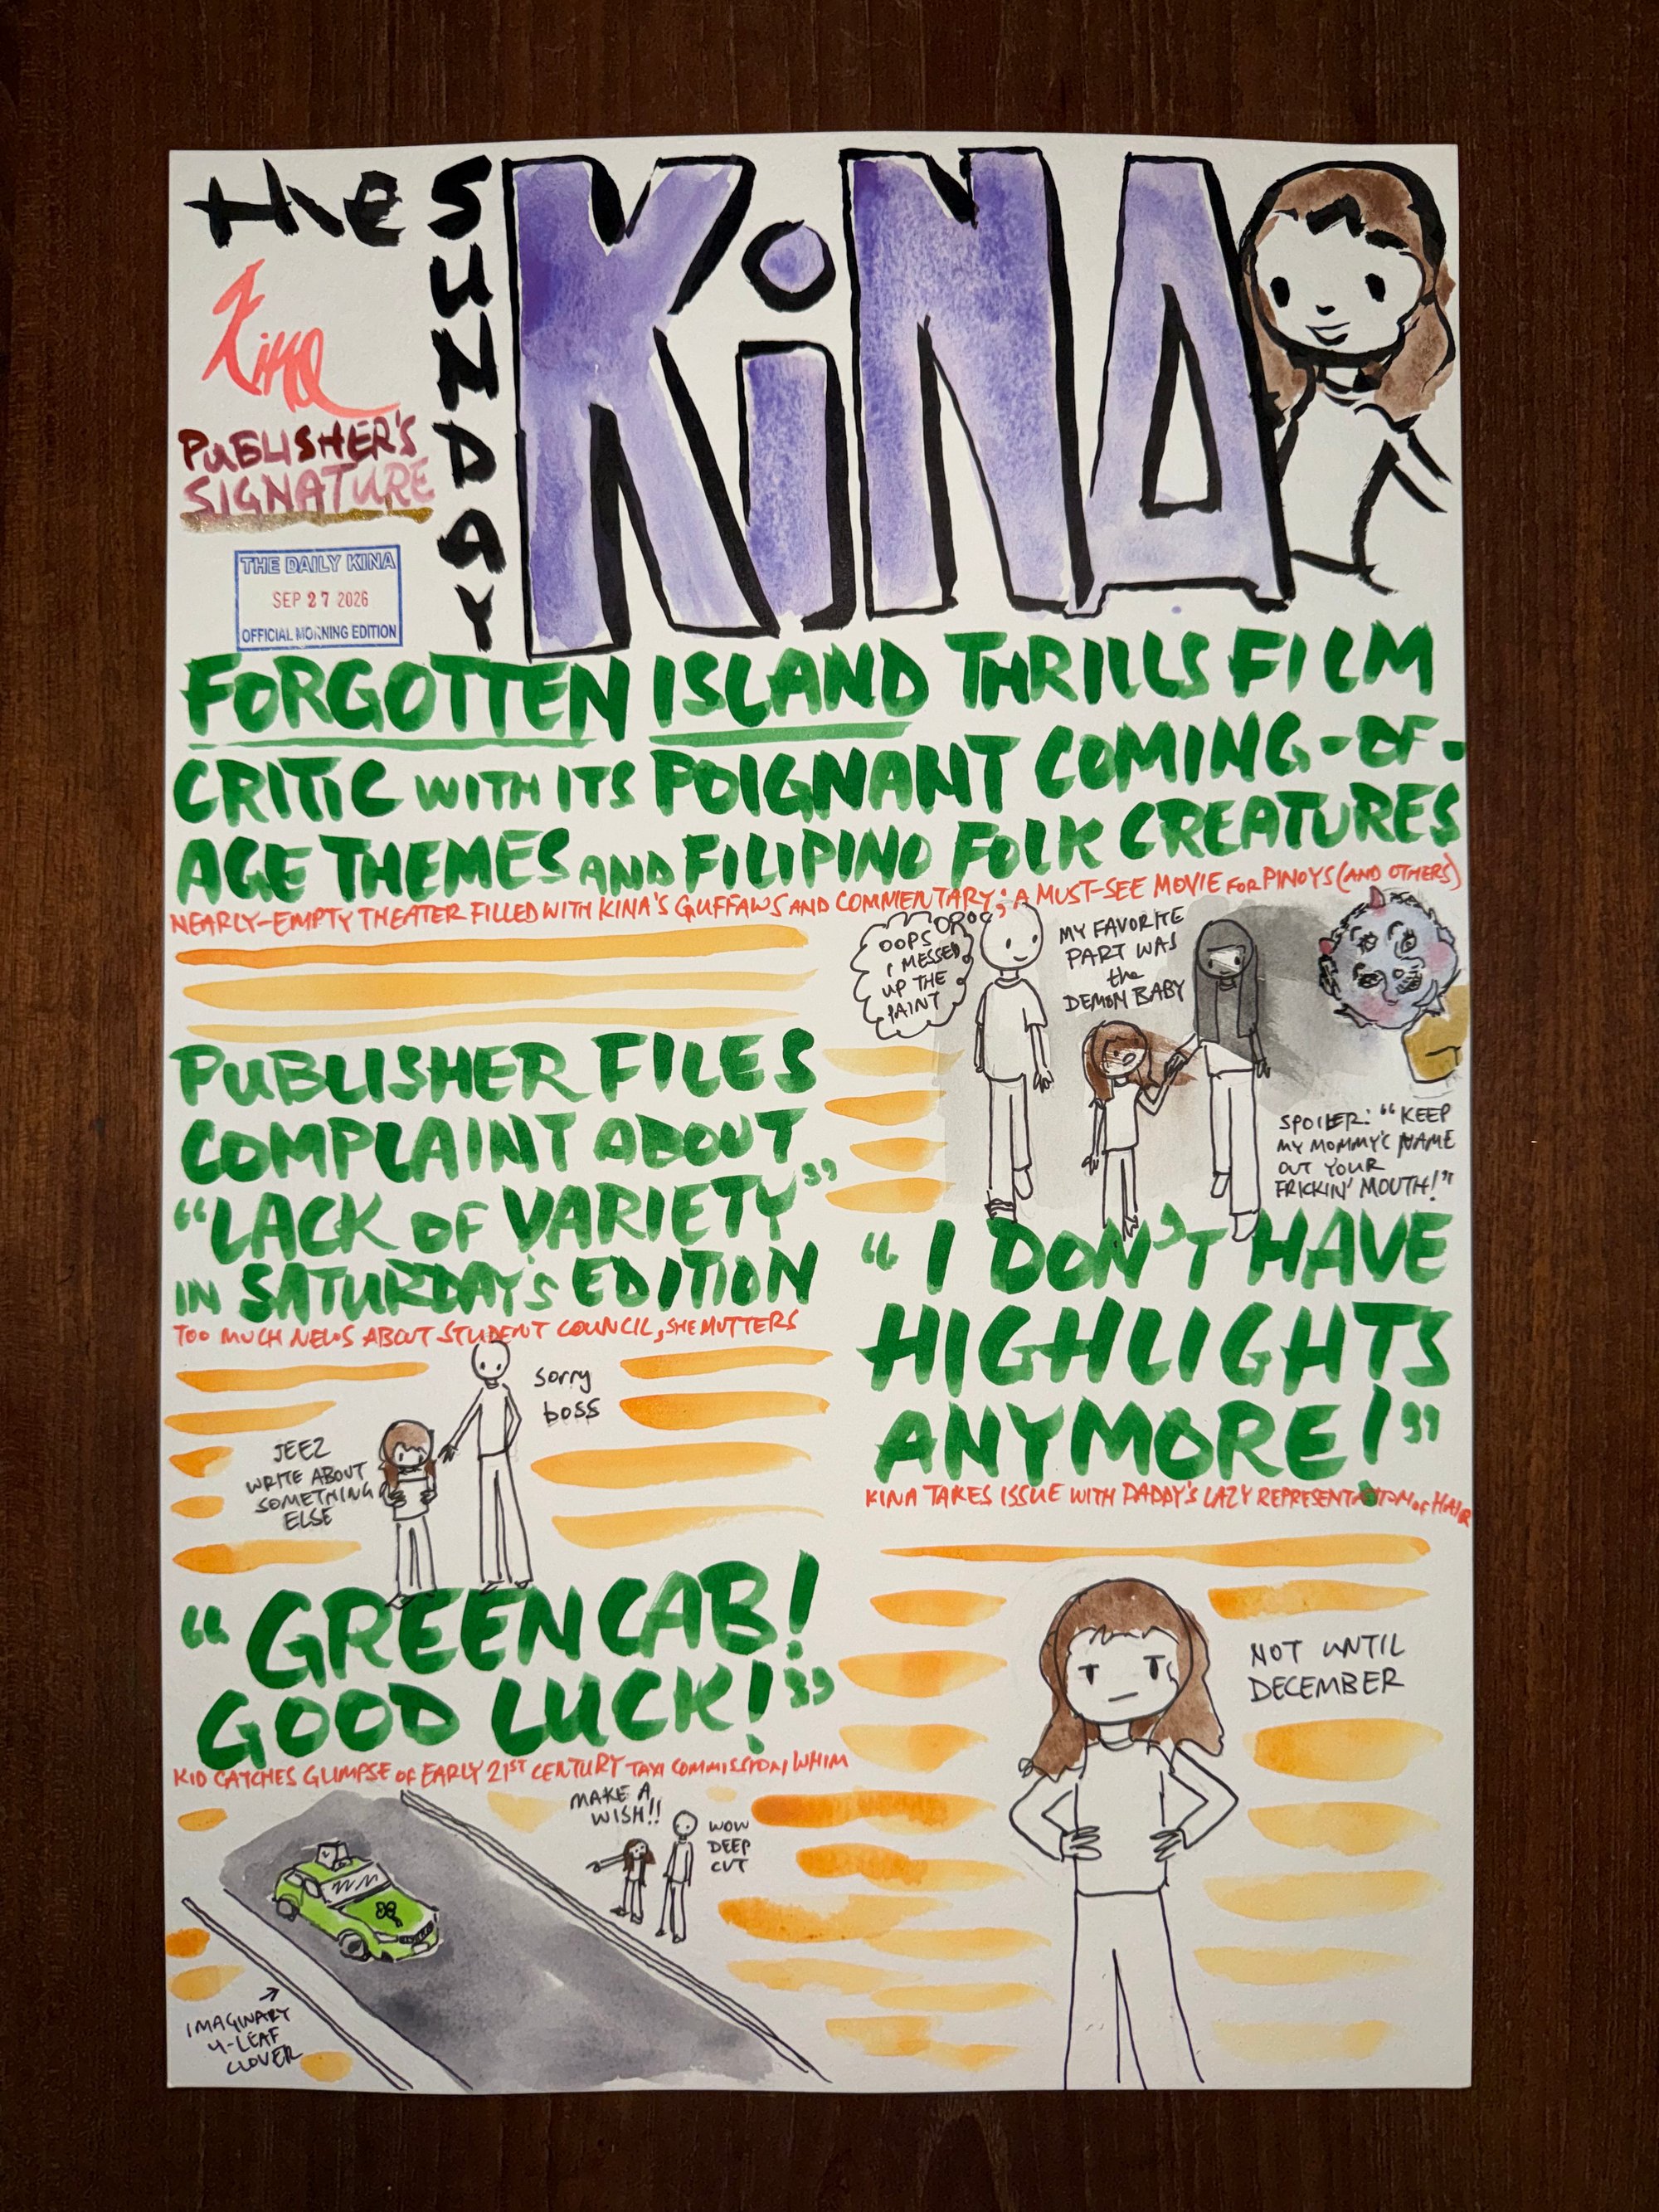 the
SUNDAY
KiNA
Kina
PUBLISHER'S
SIGNATURE
THE DAILY KINA
SEP 27 2026
OFFICIAL MORNING EDITION
FORGOTTEN ISLAND THRILLS FILM
CRITIC WITH ITS POIGNANT COMING-OF-
AGE THEMES AND FILIPINO FOLK CREATURES
NEARLY-EMPTY THEATER FILLED WITH KINA'S GUFFAWS AND COMMENTARY; A MUST-SEE MOVIE FOR PINOYS (AND OTHERS)
OOPS
I MESSED
UP THE
PAINT
MY FAVORITE
PART WAS
the
DEMON BABY
SPOILER: "KEEP
MY MOMMY'S NAME
OUT YOUR
FRICKIN' MOUTH!"
PUBLISHER FILES
COMPLAINT ABOUT
"LACK OF VARIETY"
IN SATURDAY'S EDITION
TOO MUCH NEWS ABOUT STUDENT COUNCIL, SHE MUTTERS
sorry
boss
JEEZ
WRITE ABOUT
SOMETHING
ELSE
"I DON'T HAVE
HIGHLIGHTS
ANYMORE!"
KINA TAKES ISSUE WITH DADDY'S LAZY REPRESENTATION OF HAIR
NOT UNTIL
DECEMBER
"GREEN CAB!
GOOD LUCK!"
KID CATCHES GLIMPSE OF EARLY 21ST CENTURY TAXI COMMISSION WHIM
MAKE A
WISH!!
WOW
DEEP
CUT
IMAGINARY
4-LEAF
CLOVER